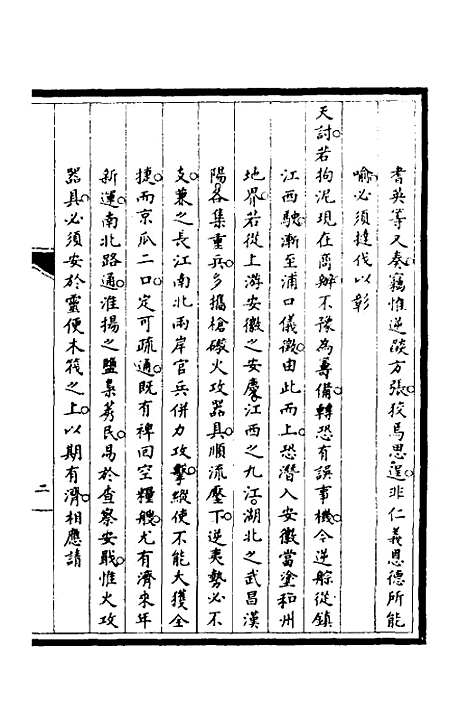 耆英等又奏竊惟逆燄方張。狡焉思逞。非仁義恩德所能
喻。必須撻伐以彰
天討。若拘泥現在商辦。不豫為籌備。轉恐有誤事機。今逆艅從鎮
江西駛。漸至浦口儀徵。由此而上。恐潛入安徽當塗和州
地界。若從上游安徽之安慶。江西之九江。湖北之武昌漢
陽。各集重兵。多攜槍礮火攻器具。順流壓下。逆夷勢必不
支。兼之長江南北兩岸官兵併力攻擊。縱使不能大獲全
捷。而京瓜二口。定可疏通。既有裨回空糧艘。尤有濟來年
新運。南北路通。淮揚之鹽梟莠民。易於查察安戢。惟火攻
器具。必須安於靈便木筏之上。以期有濟。相應請
二